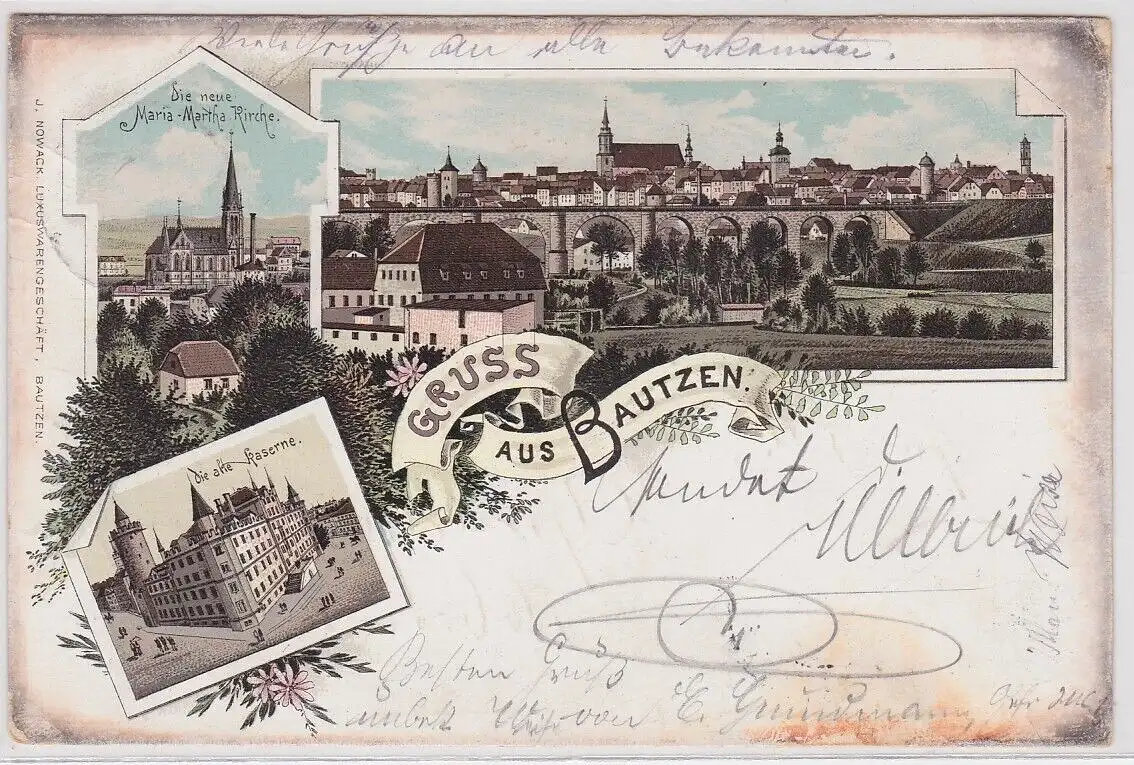 Viele Grüße an alle Bekannten.
Die neue
Maria-Martha Kirche.
J. NOWACK LUXUSWARENGESCHÄFT, BAUTZEN.
GRUSS
AUS BAUTZEN.
Die alte Kaserne.
sendet
Besten Gruß
unbek. Weise von E. Grundmann